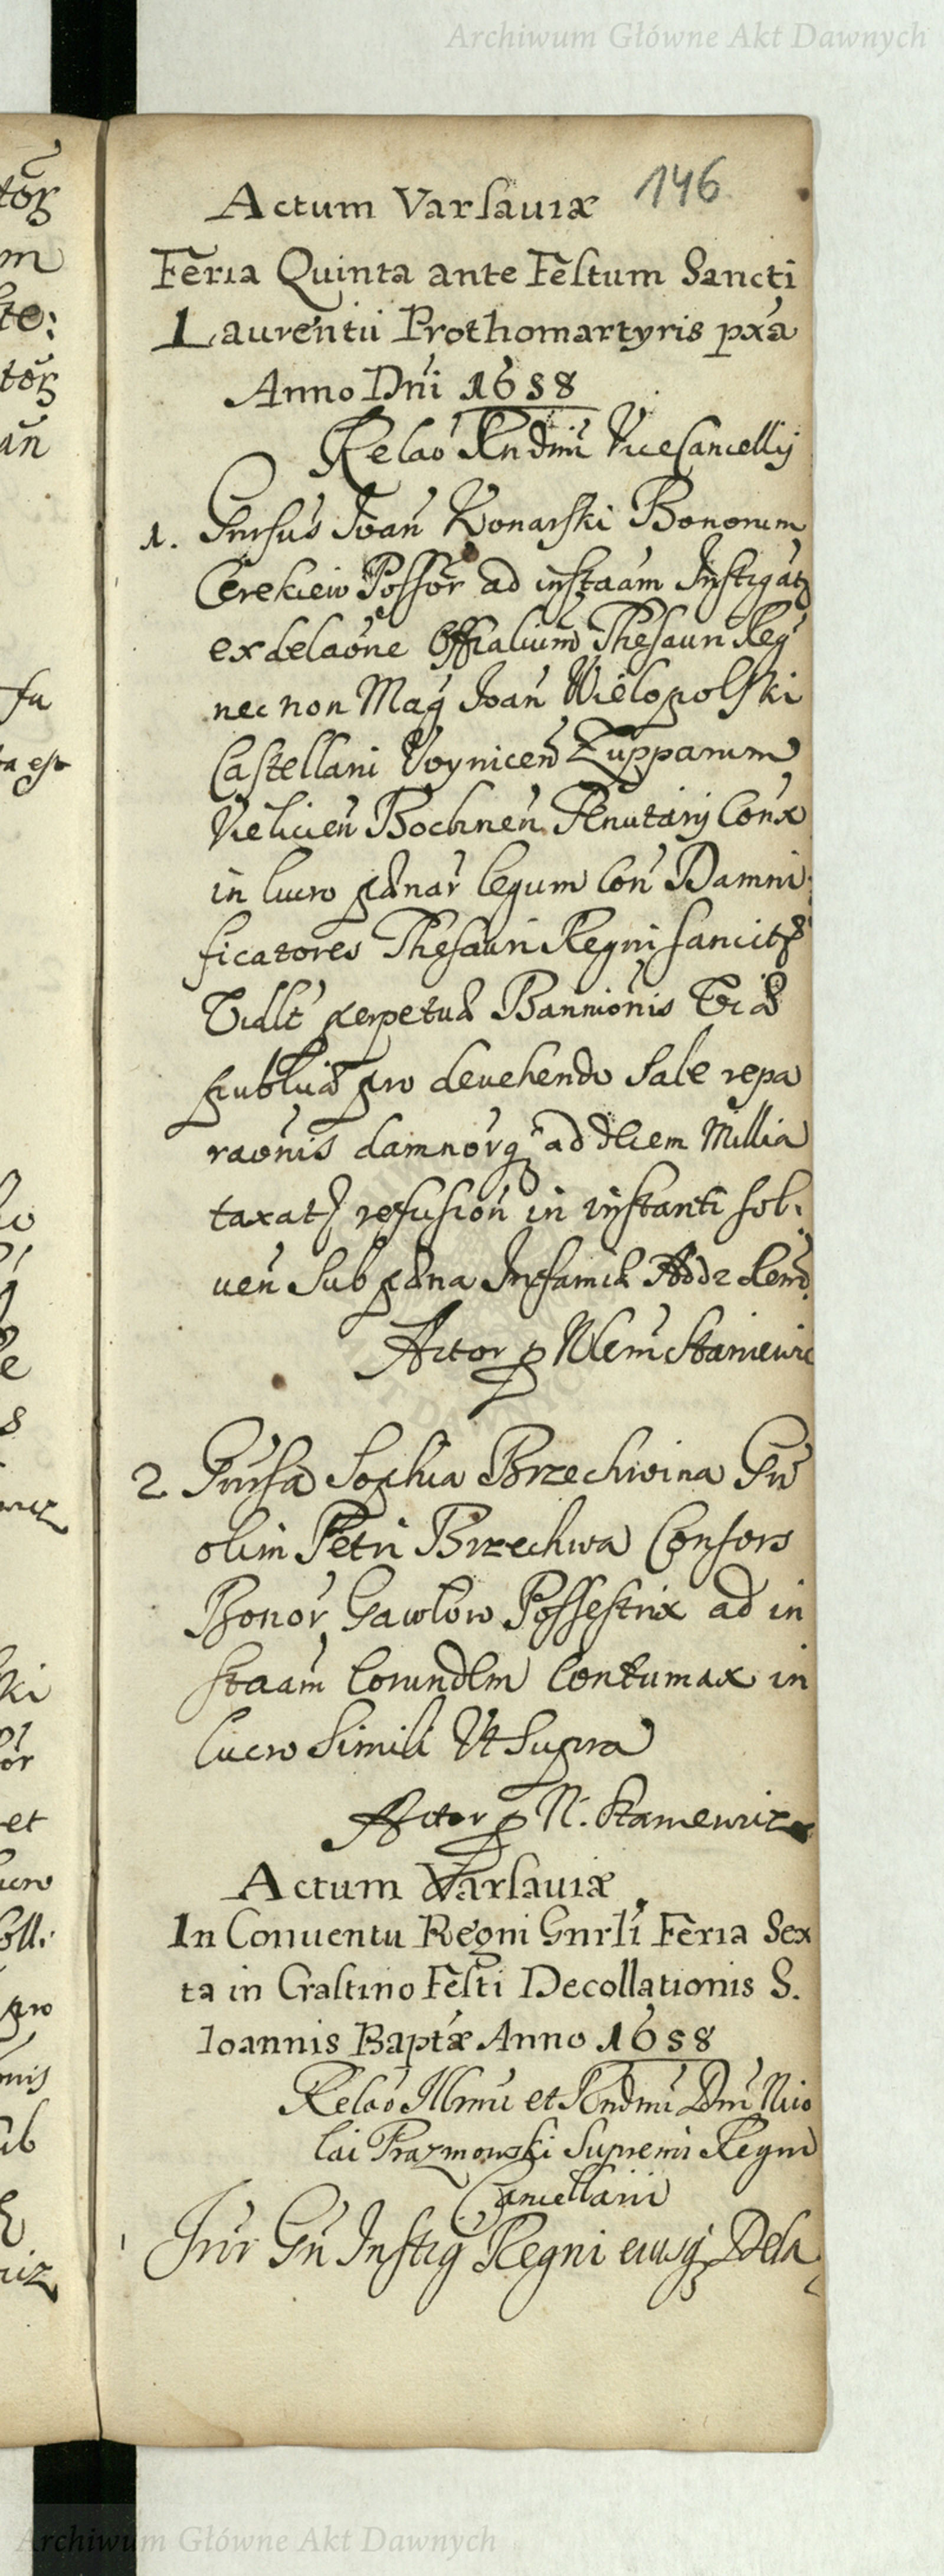 Archiwum Główne Akt Dawnych
146
Actum Varsauiæ
Feria Quinta ante Festum Sancti
Laurentii Prothomartyris pxa
Anno Dni 1658
Relaō Rndmi ViceCancellij
1. Gnrsus Joan Konarski Bonorum
Cerekiew Possor ad instaam Instigat
ex delaone Offialium Thesauri Reg
nec non Mag Joan Wielopolski
Castellani Voynicen Zupparum
Vielicien Bochnen Conx
in lucro pænar legum Con Damni
ficatores Thesauri Regni sancit
Vidlt perpetuæ Bannionis
publicæ pro deuehendo Sale repa
raonis damnorq ad decem Millia
taxat refusion in instanti sol.
uen Sub pæna Infamiæ
Actor p Nlem Staniewic
2 Gnrsa Sophia Brzechwina Gn
olim Petri Brzechwa Consors
Bonor Gawlow Possestrix ad in
staam Corundem Contumax in
lucro Simili Vt Supra
Actor p N. Staniewicz
Actum Varsauiæ
In Conuentu Regni Gnrli Feria Sex
ta in Crastino Festi Decollationis S.
Ioannis Baptæ Anno 1658
Relaō Illmi et Rndmi Dni Nico
lai Prazmowski Supremi Regni
Cancellarii
1 Inr Gn Instig Regni eiusq Dela
Archiwum Główne Akt Dawnych